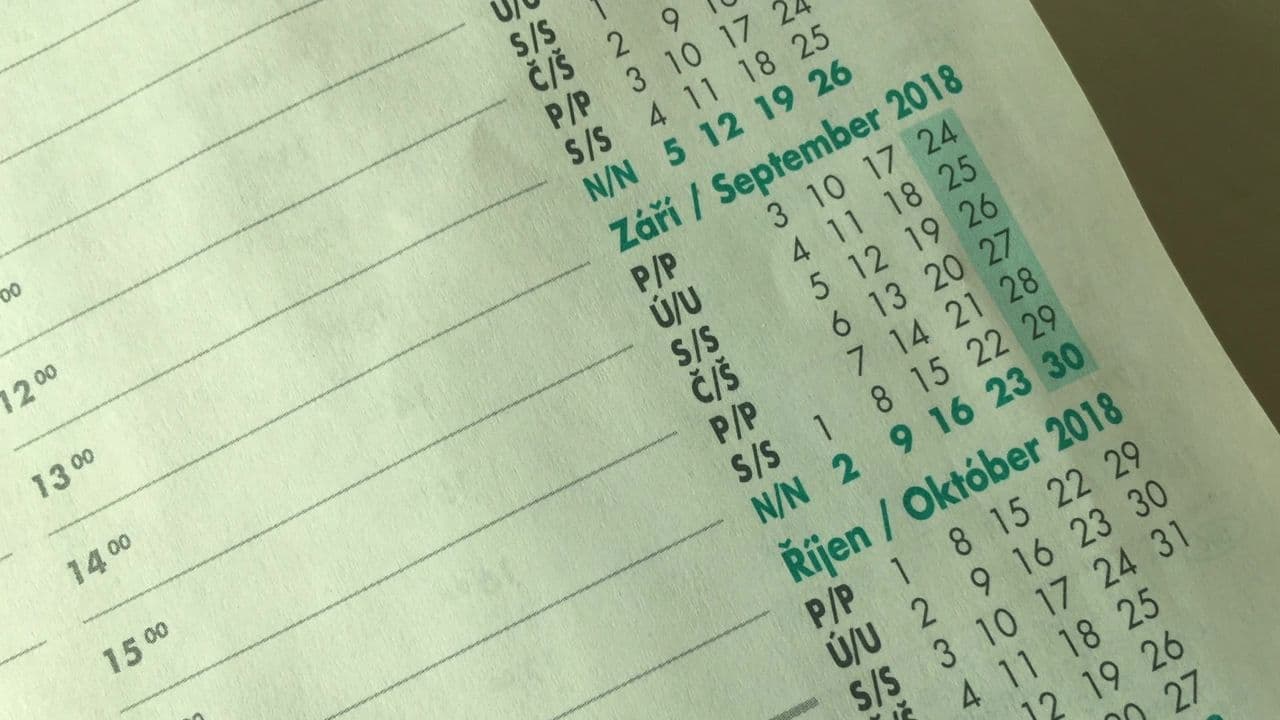 12 00
13 00
14 00
15 00
Ú/U
S/S 1
Č/Š 2 9 16
P/P 3 10 17 24
S/S 4 11 18 25
N/N 5 12 19 26
Září / September 2018
P/P 3 10 17 24
Ú/U 4 11 18 25
S/S 5 12 19 26
Č/Š 6 13 20 27
P/P 7 14 21 28
S/S 1 8 15 22 29
N/N 2 9 16 23 30
Říjen / Október 2018
P/P 1 8 15 22 29
Ú/U 2 9 16 23 30
S/S 3 10 17 24 31
4 11 18 25
12 19 26
20 27